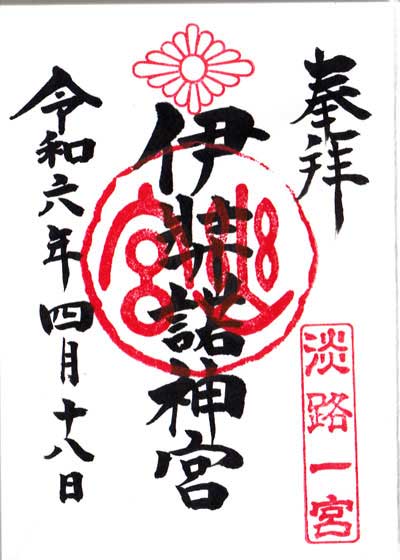 奉拝
淡路一宮
伊弉諾神宮
令和六年四月十八日